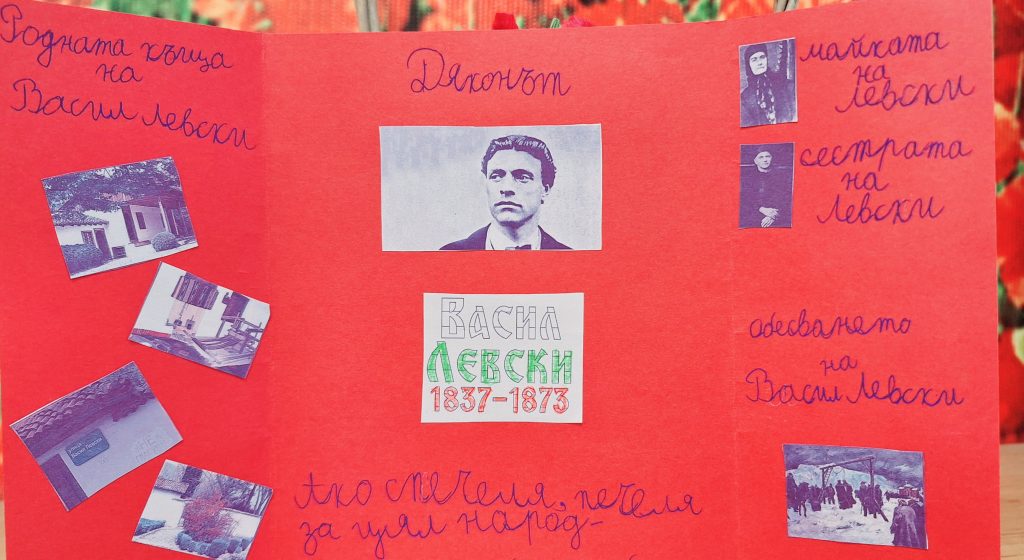 Родната къща
на
Васил Левски
Дяконът
Васил
Левски
1837-1873
Ако спечеля, печеля
за цял народ-
майката
на
Левски
сестрата
на
Левски
обесването
на
Васил Левски